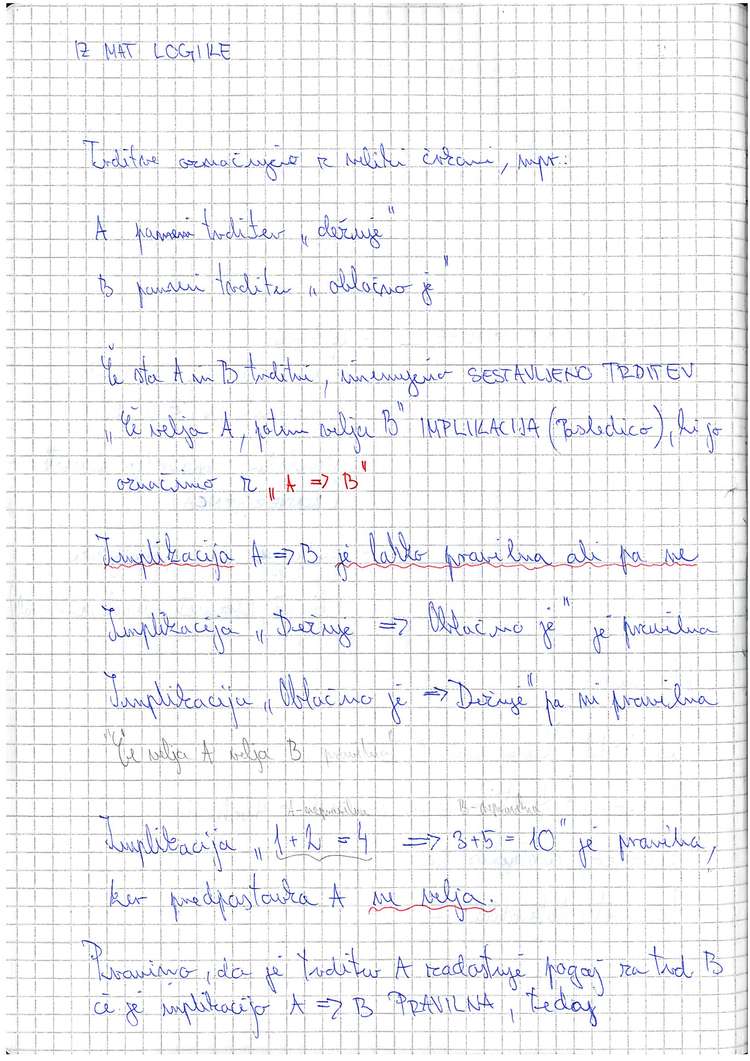 IZ MAT LOGIKE
Trditve označujejo z veliki črkami, npr.:
A pomeni trditev „dežuje"
B pomeni trditev „oblačno je"
Če sta A in B trditvi, imenujemo SESTAVLJENO TRDITEV
„Če velja A, potem velja B" IMPLIKACIJA (Posledico), ki jo
označimo z „A => B"
Implikacija A => B je lahko pravilna ali pa ne
Implikacija „Dežuje => Oblačno je" je pravilna
Implikacija „Oblačno je => Dežuje" pa ni pravilna
"Če velja A velja B
A-nepravilna B-nepravilna
Implikacija „1+2 = 4 => 3+5 = 10" je pravilna,
ker predpostavka A ne velja.
Pravimo, da je trditev A zadostuje pogoj za trd B
če je implikacijo A => B PRAVILNA, tedaj